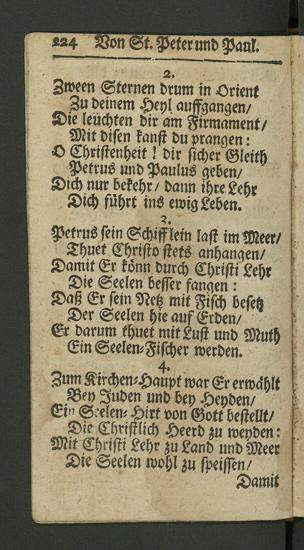 224 Von St. Peter und Paul.
2.
Zween Sternen drum in Orient
Zu deinem Heyl auffgangen/
Die leüchten dir am Firmament/
Mit disen kanst du prangen:
O Christenheit! dir sicher Gleith
Petrus und Paulus geben/
Dich nur bekehr/ dann ihre Lehr
Dich führt ins ewig Leben.
3.
Petrus sein Schifflein last im Meer/
Thuet Christo stets anhangen/
Damit Er könn durch Christi Lehr
Die Seelen besser fangen:
Daß Er sein Netz mit Fisch besetz
Der Seelen hie auf Erden/
Er darum thuet mit Lust und Muth
Ein Seelen-Fischer werden.
4.
Zum Kirchen-Haupt war Er erwählt
Bey Juden und bey Heyden/
Ein Seelen-Hirt von Gott bestellt/
Die Christlich Heerd zu weyden:
Mit Christi Lehr zu Land und Meer
Die Seelen wohl zu speissen/
Damit